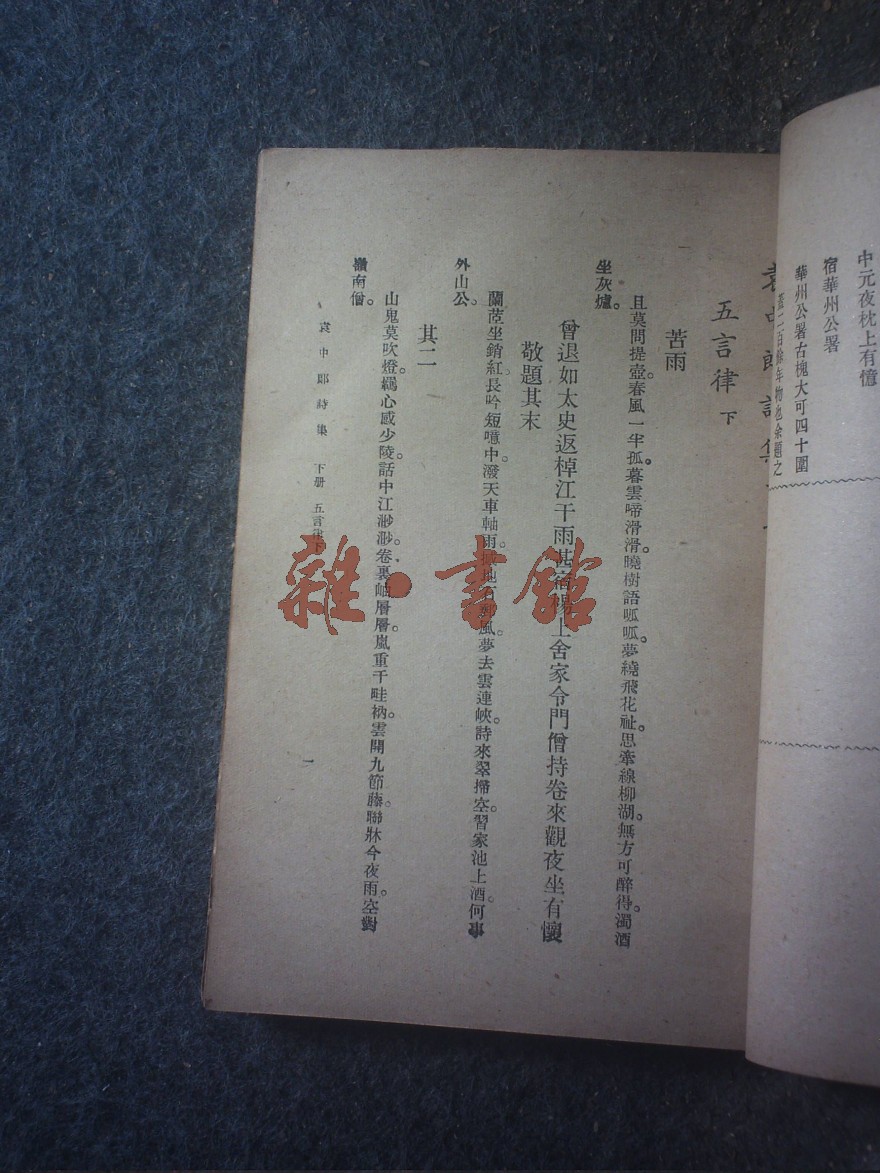 中元夜枕上有憶
宿華州公署
華州公署古槐大可四十圍
蓋二百餘年物也余題之
袁中郎詩集
五言律 下
苦雨
且莫問提壺。春風一半孤。暮雲啼滑滑。曉樹語呱呱。夢繞飛花祉。思牽線柳湖。無方可醉得。濁酒
坐灰爐。
曾退如太史返棹江干雨甚宿楊上舍家令門僧持卷來觀夜坐有懷
敬題其末
蘭茝坐銷紅。長吟短噫中。潑天車軸雨。地石風。夢去雲連峽。詩來翠掃空。習家池上酒。何事
外山公。
其二
山鬼莫吹燈。羈心感少陵。話中江渺渺。卷裏岫層層。嵐重千畦衲。雲開九節藤。聯牀今夜雨。空對
嶺南僧。
袁中郎詩集 下册 五言律下
一
雜·書館